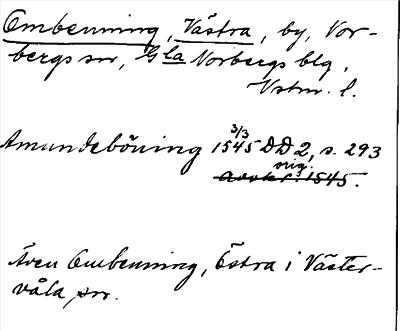 Ombenning, Västra, by, Nor-
bergs sn, Gla Norbergs blg,
Vstm. l.
Amundeböning 3/3 1545 DD 2, s. 293
orig.
avskr. 1545.
Även Ombenning, Östra i Väster-
våla sn.